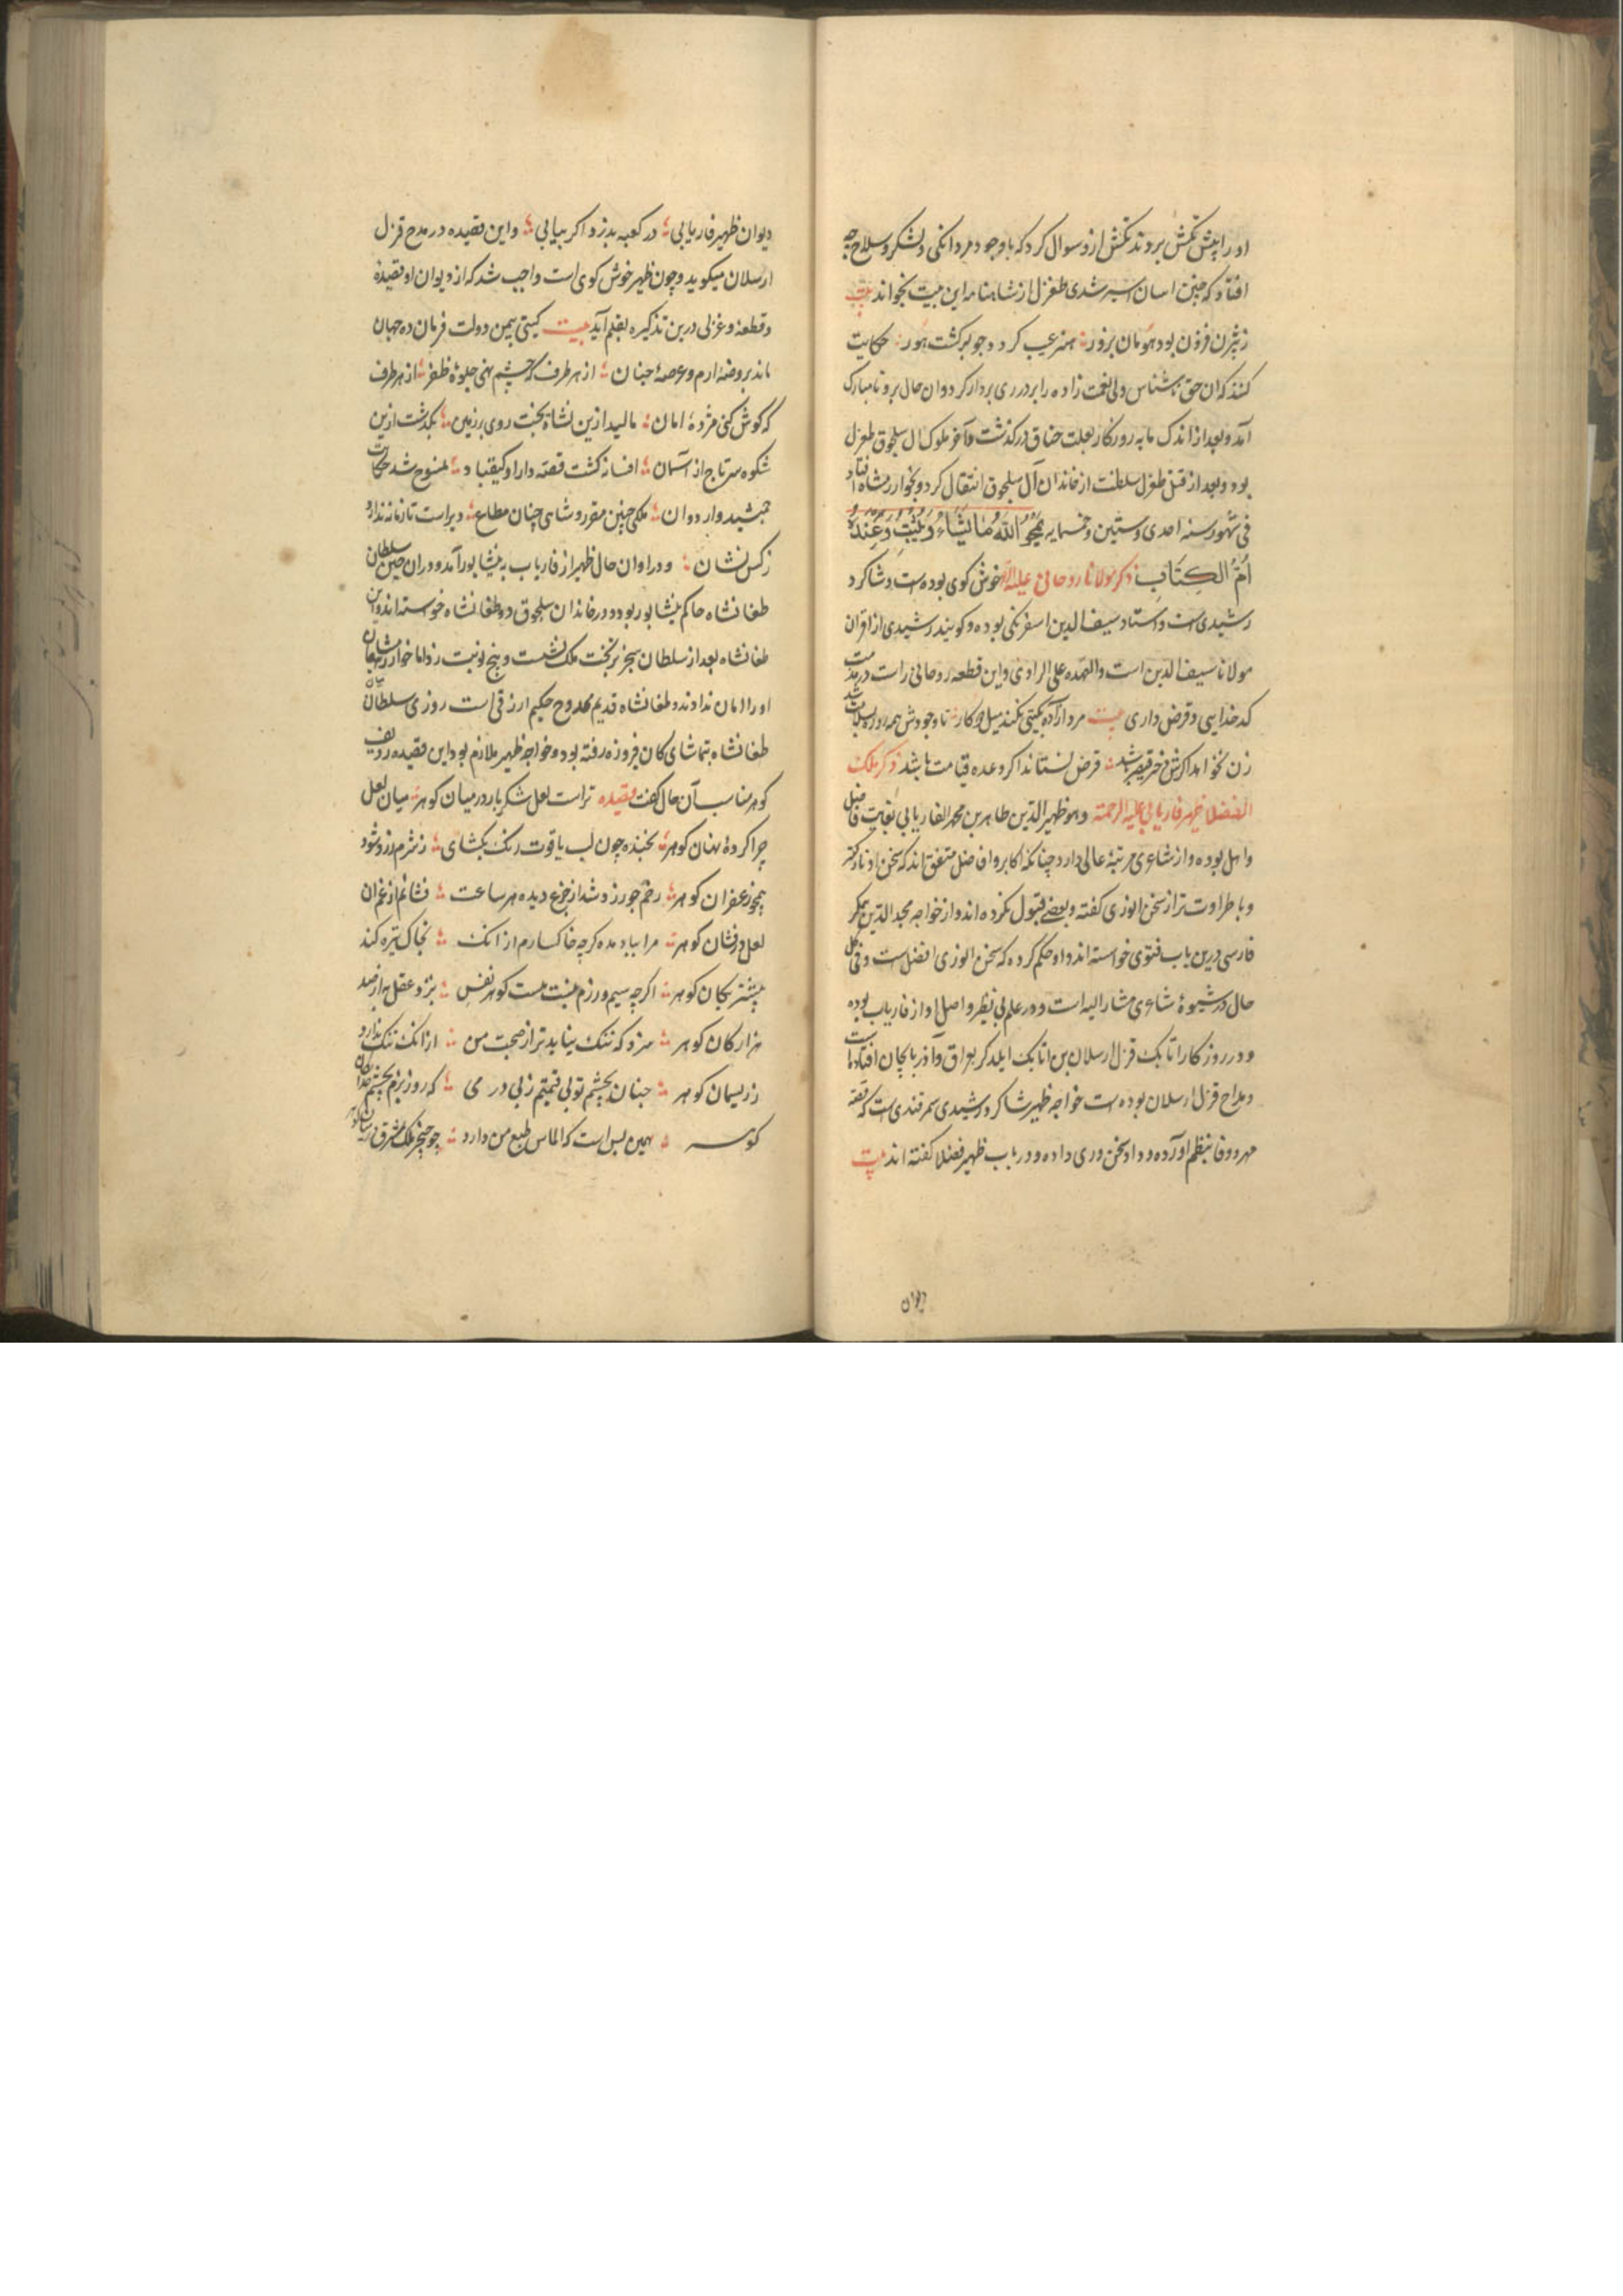 او را پیش تکش بردند تکش ازو سوال کرد که با وجود مردانکی و لشکر و سلاح چه
افتاد که چنین اسان اسیر شدی طغرل از شاهنامه این بیت بخواند بیت
ز بیژن فزون بود هومان بزور هنر عیب کردد چو برکشت هور حکایت
کنند که ان حق ناشناس ولی نعمت زاده را بر در ری بردار کرد و ان حال برو نامبارک
آمد و بعد از اندک مایه روزکار بعلت خناق درکذشت و آخر ملوک ال سلجوق طغرل
بود و بعد از قتل طغرل سلطنت از خاندان آل سلجوق انتقال کرد و بخوارزمشاه افتاد
فی شهور سنه احدی و ستین و خمسمایه یمحو الله ما یشاء و یثبت و عنده
ام الکتاب ذکر مولانا روحانی علیه خوش کوی بوده است و شاکرد
رشیدی است و استاد سیف الدین اسفرنکی بوده و کویند رشیدی از اقران
مولانا سیف الدین است والعهده علی الراوی و این قطعه روحانی راست در مذمت
کدخدایی و قرض داری بیت مرد ازاده بکیتی نکند میل دو کار تا وجودش همه روزه بسلامت باشد
زن نخواهد اکرش دختر قیصر باشد قرض نستاند اکر وعده قیامت باشد ذکر ملک
الفضلا ظهیر فاریابی علیه الرحمة وهو ظهیر الدین طاهر بن محمد الفاریابی بغایت فاضل
و اهل بوده و از شاعری مرتبهٔ عالی دارد چنانکه اکابر و افاضل متفق اند که سخن او نازکتر
و با طراوت تر از سخن انوری کفته و بعضی قبول نکرده اند و از خواجه مجد الدین همکر
فارسی درین باب فتوی خواسته اند و او حکم کرده که سخن انوری افضل است و فی کل
حال در شیوهٔ شاعری مشار الیه است و در علم بی نظیر و اصل او از فاریاب بوده
و در روزکار اتابک قزل ارسلان بن اتابک ایلدکز بعراق و آذربایجان افتاده است
و مداح قزل ارسلان بوده است خواجه ظهیر شاکرد رشیدی سمرقندی است که قصه
مهر و وفا بنظم آورده و داد سخن وری داده و در باب ظهیر فضلا کفته اند بیت
دیوان
دیوان ظهیر فاریابی در کعبه بدزد اکر بیابی و این قصیده در مدح قزل
ارسلان میکوید و چون ظهیر خوش کوی است واجب شد که از دیوان او قصیدهٔ
و قطعهٔ و غزلی درین تذکیره بقلم آید بیت کیتی بیمن دولت فرمان ده جهان
ماند بروضهٔ ارم و عرصهٔ جنان از هر طرف که چشم نهی جلوهٔ ظفر از هر طرف
که کوش کنی مژدهٔ امان مالید ازین نشاط بخت روی بر زمین بکذشت ازین
شکوه سر تاج از آسمان افسانه کشت قصهٔ دارا و کیقباد منسوخ شد حکایت
جمشید و اردوان ملکی چنین مقرر و شاهی چنان مطاع دیراست تا زمانه ندارد
ز کس نشان و در اوان حال ظهیر از فاریاب به نیشابور آمد و در ان حین سلطان
طغانشاه حاکم نیشابور بود و در خاندان سلجوق دو طغانشاه خواسته اند و این
طغانشاه بعد از سلطان سنجر بر تخت ملک نشست و پنج نوبت زد اما خوارزمشاهیان
او را امان ندادند و طغانشاه قدیم ممدوح حکیم ارزقی است روزی سلطان
طغانشاه بتماشای کان فیروزه رفته بود و خواجه ظهیر ملازم بود این قصیده ردیف
کوهر مناسب آن حال کفت قصیده تراست لعل شکربار در میان کوهر میان لعل
چرا کردهٔ نهان کوهر بخنده چون لب یاقوت رنک بکشای ز شرم زرد شود
همچو زعفران کوهر رخم چو زر شد از جزع دیده هر ساعت فشانم از غم ان
لعل در فشان کوهر مرا بباد مده کرچه خاکسارم از انک بخاک تیره کند
بیشتر بکان کوهر اکرچه سیم و زرم نیست هست کوهر نفس بنزد عقل به از صد
هزار کان کوهر سزد که ننک نیاید ترا ز صحبت من از انک ننک ندارد
ز ریسمان کوهر چنان بچشم تو بی قیمتم ز بی درمی که روز بزم بچشم
کوهر همین بس است که الماس طبع من دارد چو خنجر ملک شرق در میان کوهر